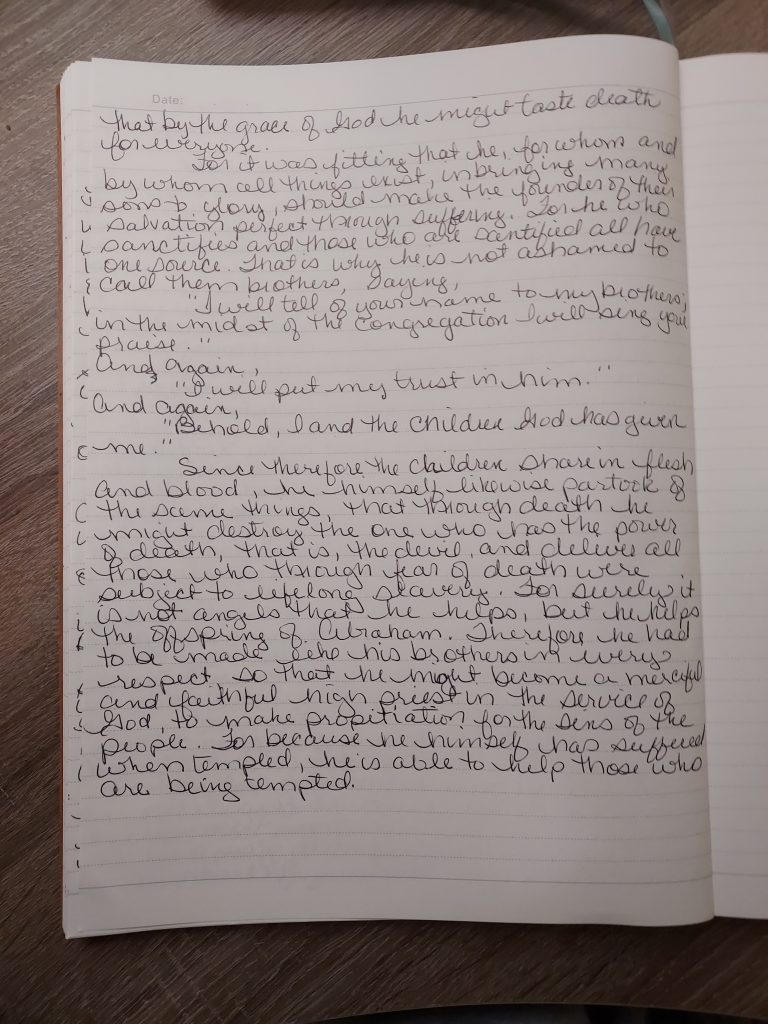 Date:
that by the grace of God he might taste death
for everyone.
For it was fitting that he, for whom and
by whom all things exist, in bringing many
sons to glory, should make the founder of their
salvation perfect through suffering. For he who
sanctifies and those who are santified all have
one source. That is why he is not ashamed to
call them brothers, saying,
"I will tell of your name to my brothers;
in the midst of the congregation I will sing your
praise."
And again,
"I will put my trust in him."
And again,
"Behold, I and the children God has given
me."
Since therefore the children share in flesh
and blood, he himself likewise partook of
the same things, that through death he
might destroy the one who has the power
of death, that is, the devil, and deliver all
those who through fear of death were
subject to lifelong slavery. For surely it
is not angels that he helps, but he helps
the offspring of Abraham. Therefore he had
to be made like his brothers in every
respect, so that he might become a merciful
and faithful high priest in the service of
God, to make propitiation for the sins of the
people. For because he himself has suffered
when tempted, he is able to help those who
are being tempted.